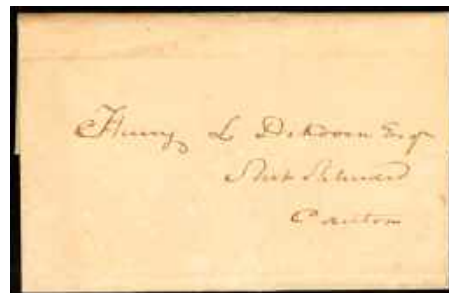 Henry L DeKoven Esq
Ship Schuard
Canton